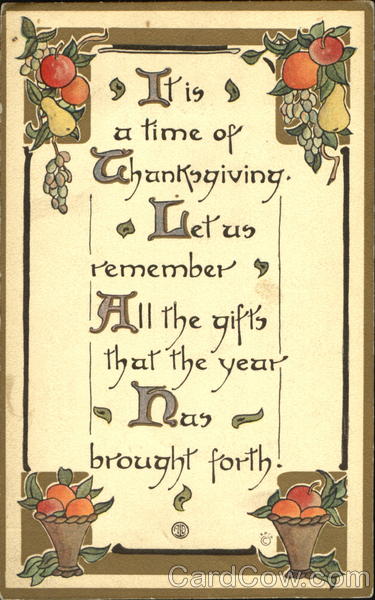 It is
a time of
Thanksgiving.
Let us
remember
All the gifts
that the year
Has
brought forth.
CardCow.com